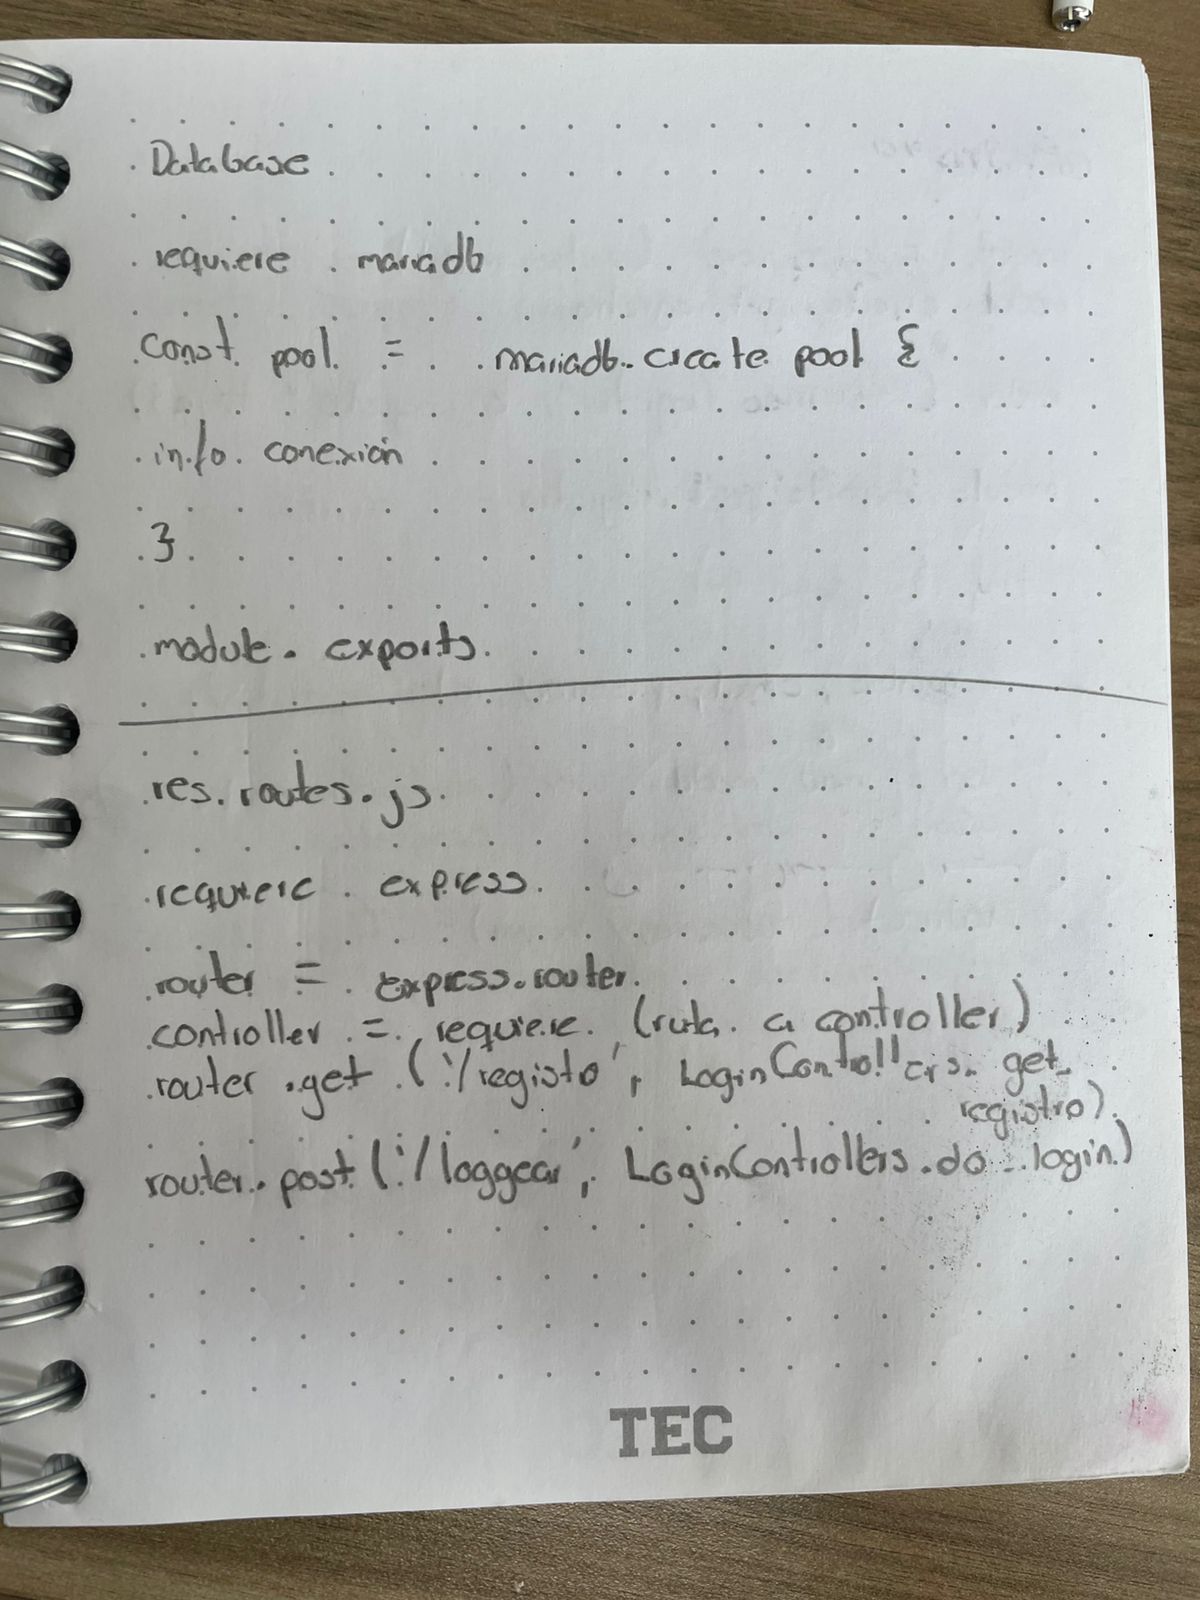 Database
requiere mariadb
const pool = mariadb.create pool {
info conexión
}
module.exports
res.routes.js
requiere express
router = express.router
controller = requiere (ruta a controller)
router.get ('/registo', LoginControllers.get_
registro)
router.post ('/loggear', LoginControllers.do_login)
TEC